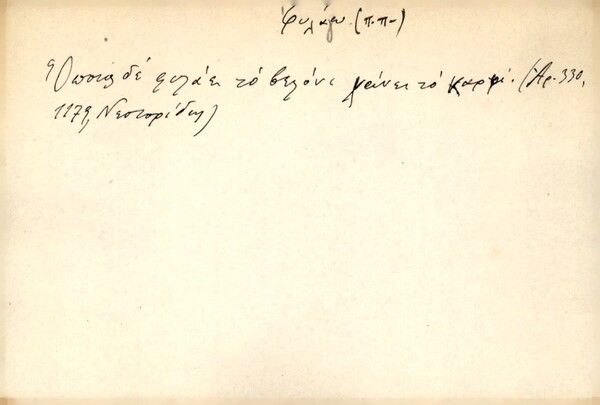 φυλάγω (π.π-)
Ὅποιος δέ φυλάει τό βελόνι χάνει τό καρφί. (Ἀρ. 330,
1179, Νεστορίδης)